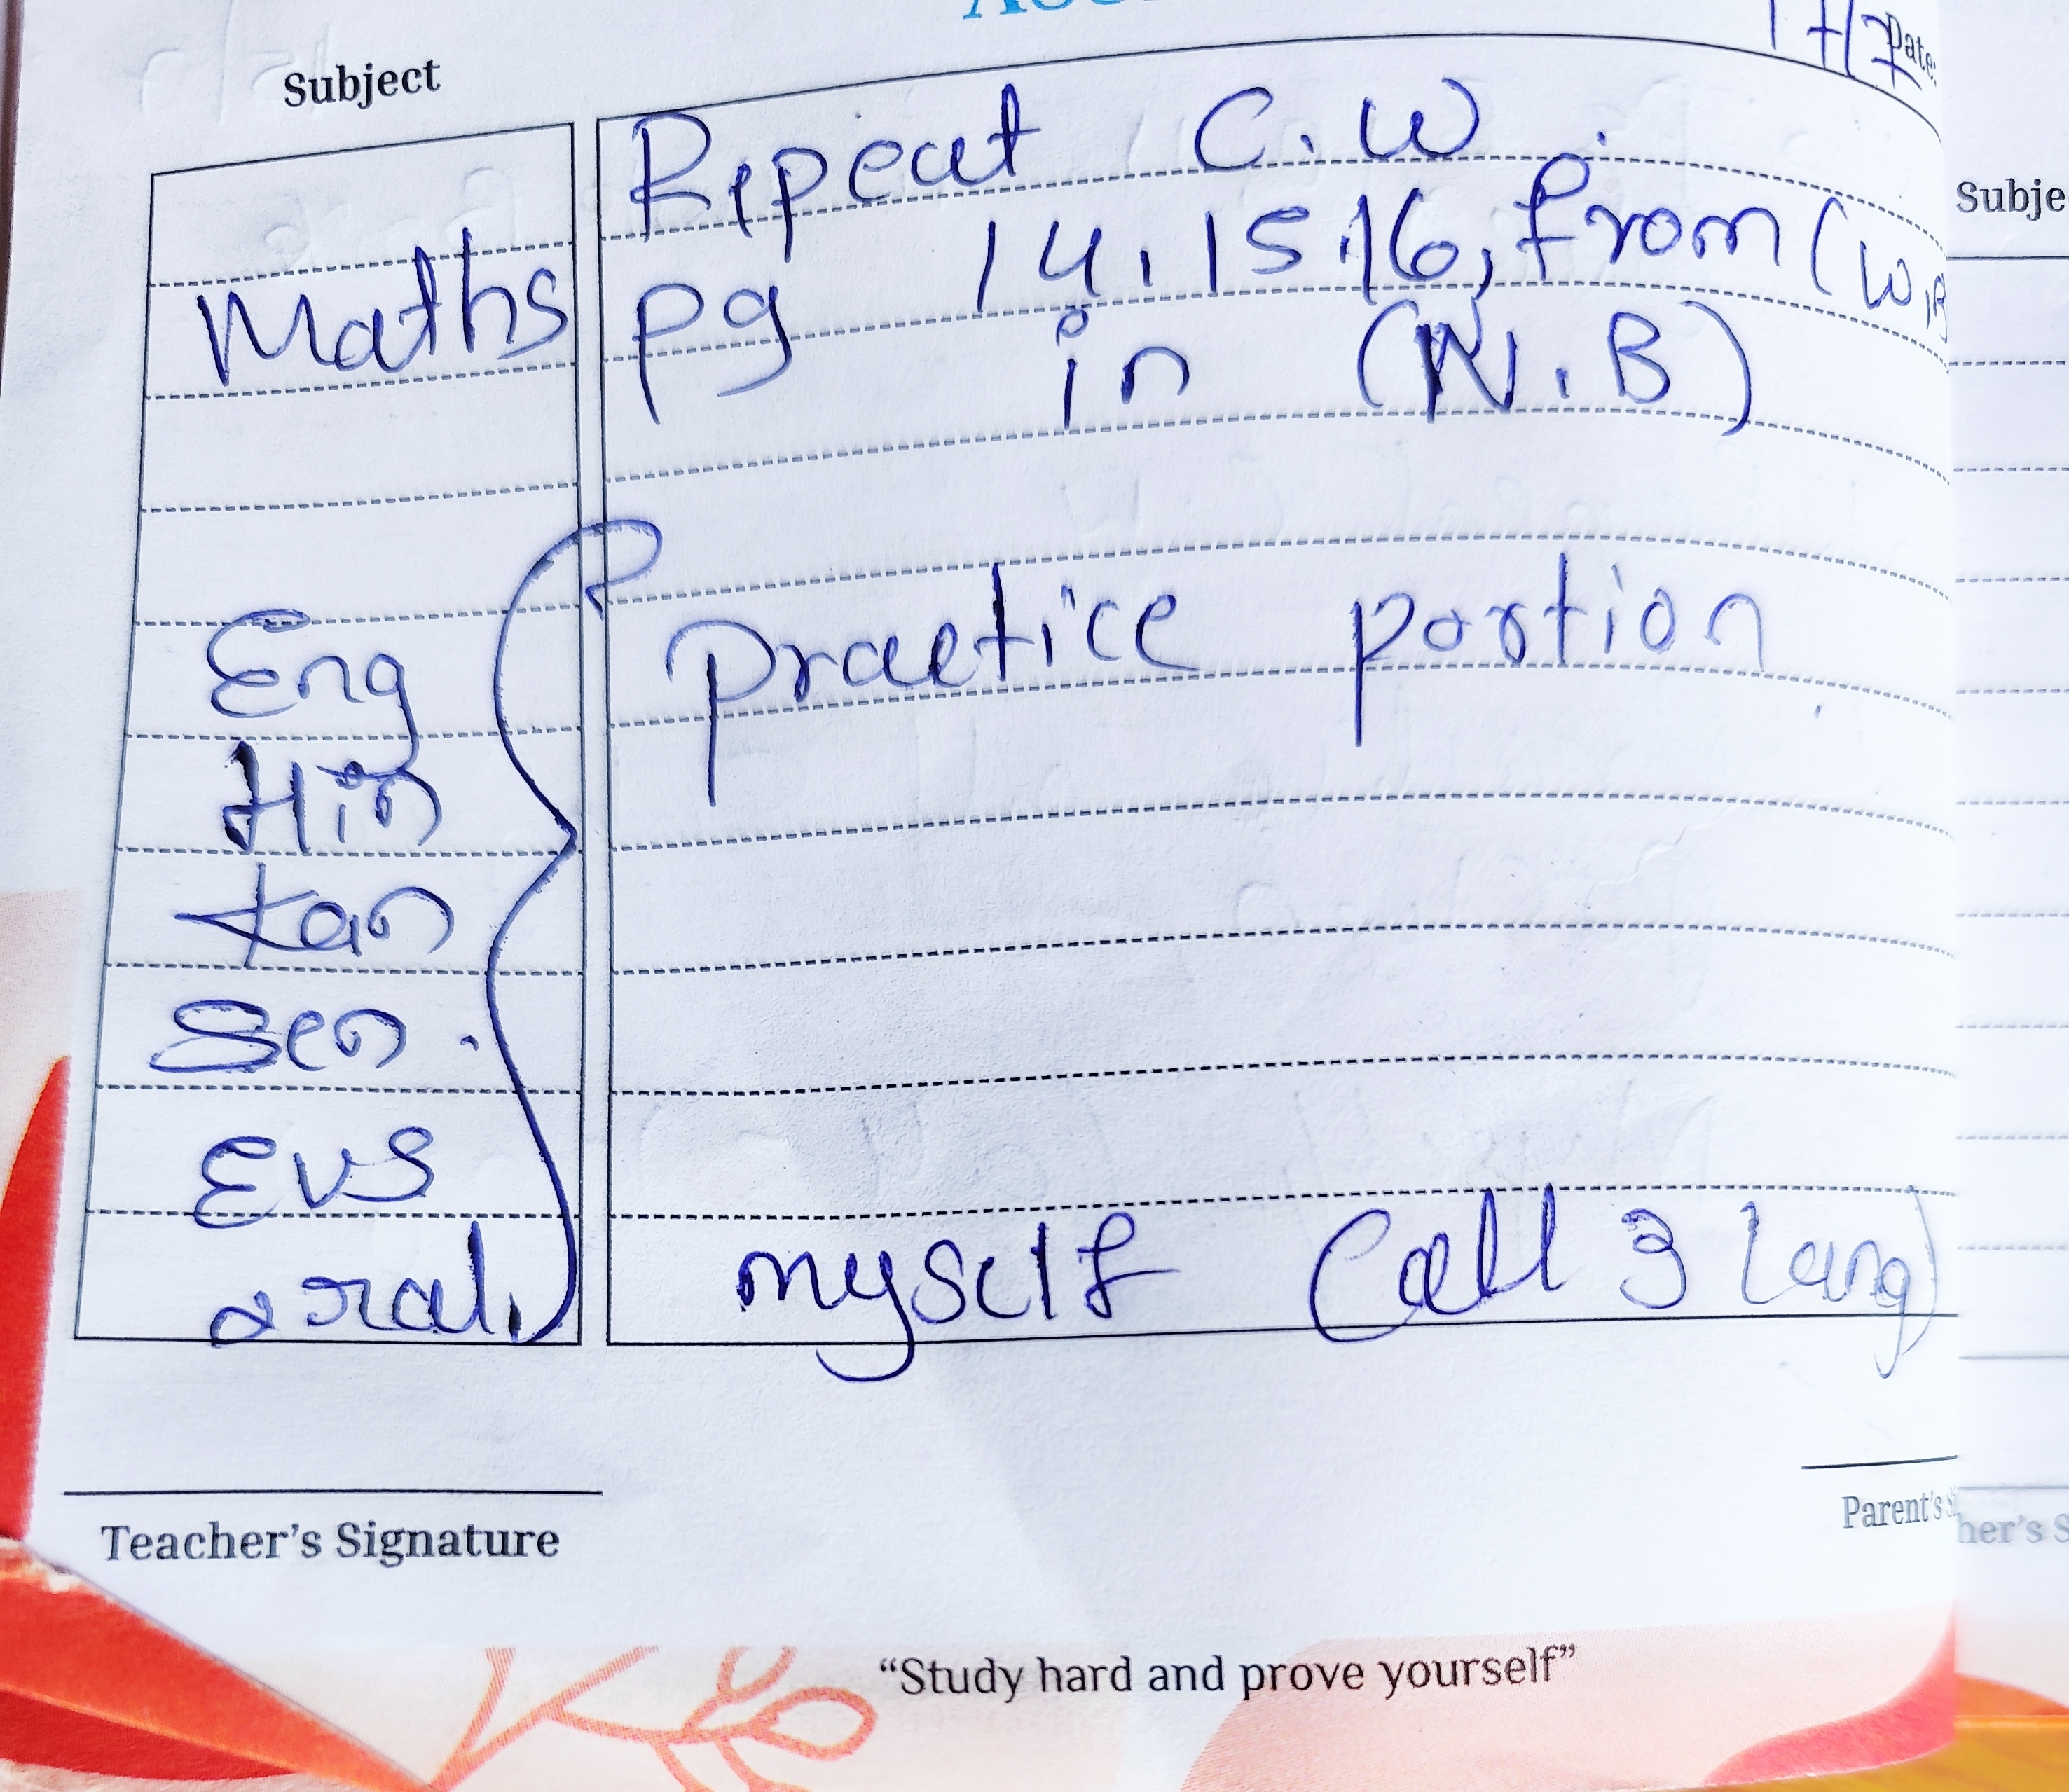 17/7
Date:
Subject
Repeat C.W.
Maths pg 14, 15, 16, from (W.B
in (N.B)
Eng Practice portion
Hin
Kan
Scn.
Evs
oral, myself (all 3 lang)
Teacher's Signature
Parent's S
"Study hard and prove yourself"
Subje
her's S